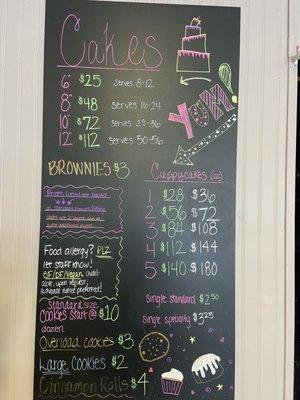 Cakes
6" $25 serves 8-12
8" $48 serves 16-24
10" $72 serves 28-36
12" $112 serves 50-56
YUM
BROWNIES $3
Prices listed are based
on standard flavors/filling
cakes are 2 layers
Food allergy? PLZ
let staff know!
GF/DF/Vegan avail-
able, upon request,
advance notice preferred!
Standard size
Cookies start @ $10
dozen
Overload cookies $3
Large Cookies $2
Cinnamon Rolls $4
Cuppycakes (DZ)
1 $28 $36
2 $56 $72
3 $84 $108
4 $112 $144
5 $140 $180
Single standard $2.50
Single specialty $3.25